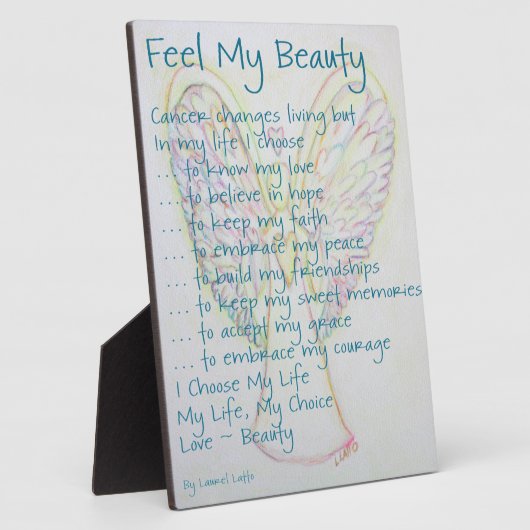 Feel My Beauty
Cancer changes living but
In my life I choose
... to know my love
... to believe in hope
... to keep my faith
... to embrace my peace
... to build my friendships
... to keep my sweet memories
... to accept my grace
... to embrace my courage
I Choose My Life
My Life, My Choice
Love ~ Beauty
LLATTO
By Laurel Latto